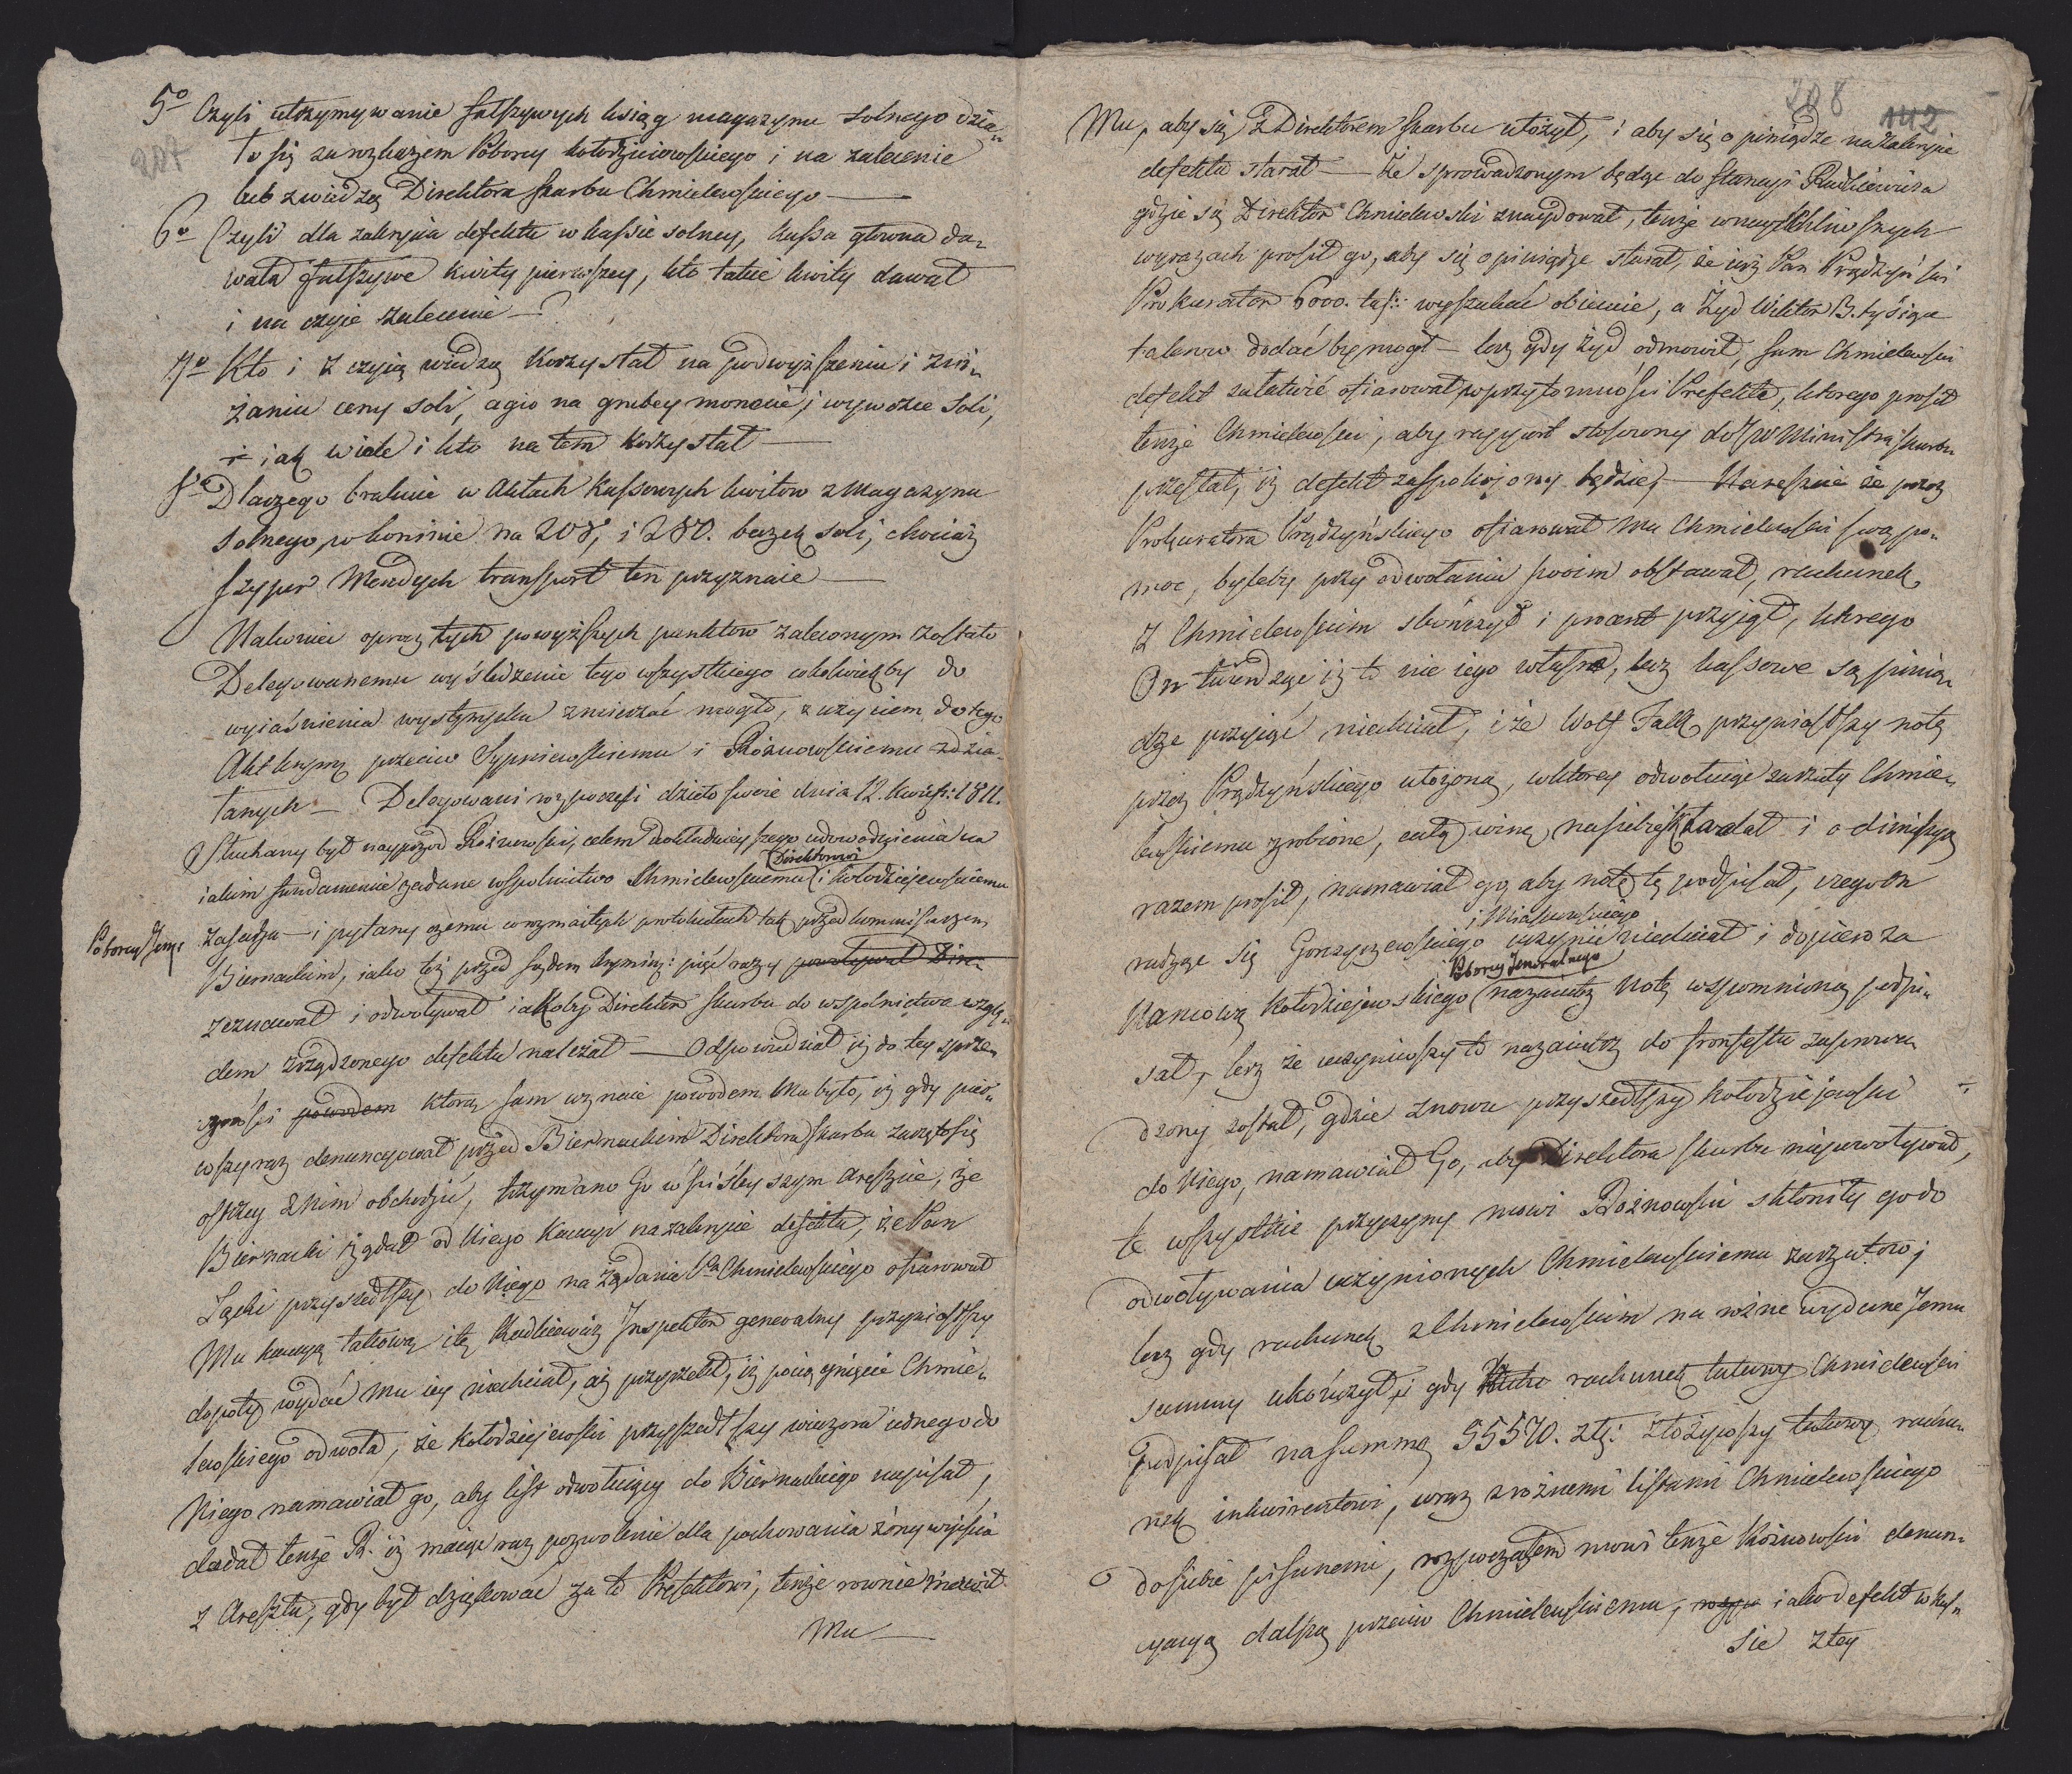 207
5o Czyli utrzymywanie fałszywych ksiąg magazynu solnego dzia„
ło się za rozkazem Poborcy Kołodziejowskiego i na zalecenie
lub z wiedzą Direktora skarbu Chmielewskiego —
6o Czyli dla zakrycia defektu w kassie solney, kassa głowna da„
wała fałszywe kwity pierwszey, kto takie kwity dawał
i na czyie zalecenie — ?
7o Kto i z czyią wiedzą korzystał na podwyższeniu i zni„
żaniu ceny soli, agio na grubey monecie i wywozie soli,
i iak wiele i kto na tem korzystał —
8o Dlaczego brakuie w Aktach Kassowych kwitow z Magazynu
solnego w koninie na 208, i 280. beczek soli, chociaż
szyper Mendych transport ten przyznaie —
Nakoniec oprocz tych powyższych punktow zaleconym zostało
Delegowanemu wyśledzenie tego wszystkiego cokolwiekby do
wyiaśnienia występku zmierzać mogło, z użyciem do tego
Akt krym: przeciw Sypniewskiemu i Rożnowskiemu zdzia„
łanych — Delegowani rozpoczęli dzieło swoie dnia 12. Kwiet: 1811.
Słuchany był naypżod Rożnowski, celem dokładnieyszego udowodnienia na
Direktorowi
iakim fundamencie zadane wspolnictwo Chmielewskiemu i Kołodziejewskiemu
Poborcy Jener:
zasadza — i pytany czemu w rozmaitych protokułach tak przed kommissarzem
Biernackim, iako też przed sądem krymin: pięć razy powoływał Dire„
zeznawał i odwoływał iakoby Direktor skarbu do wspolnictwa wzglę„
dem zrządzonego defektu należał — Odpowiedział iż do tey sprze„
czności powodem ktorą sam wyznaie powodem Mu było, iż gdy pier„
wszy raz denuncyował przed Biernackim Direktora skarbu zaczęto się
ostrzey z Nim obchodzić, trzymano Go w ściśleyszym Areszcie, że
Biernacki żądał od Niego Kaucyi na zakrycie defektu, że Pan
Łącki przyszedłszy do Niego na żądanie Pa Chmielewskiego ofiarował
Mu kaucyą takową i tę Rudkiewicz Inspektor generalny przyniosłszy
dopoty wydać mu iey niechciał, aż przyrzekł, iż pociągnięcie Chmie„
lewskiego odwoła, że Kołodziejewski przyszedłszy wieczora iednego do
Niego namawiał go, aby list odwołuiący do Biernackiego napisał,
dodał tenże R. iż maiąc raz pozwolenie dla pochowania żony wyiścia
z Aresztu, gdy był dziękować za to Prefektowi, tenże rownie mowił
Mu —
208
142
Mu, aby się z Direktorem skarbu ułożył, i aby się o pieniądze na zakrycie
defektu starał — Że sprowadzonym będąc do stancyi Rudkiewicza
gdzie się Direktor Chmielewski znaydował, tenże w nayczulszych
wyrazach prosił go, aby się o pieniądze starał, że iuż Pan Prądzyński
Prokurator 6000. tal: wyszukać obiecuie, a Żyd Wiktor B. tysiąc
talarow dodać by mogł — lecz gdy Żyd odmowił, sam Chmielewski
defekt załatwić ofiarował w przytomności Prefekta, ktorego prosił
tenże Chmielewski, aby rapport stosowny do JW Ministra skarbu
przesłał, iż defekt zaspokojony będzie, — Nareszcie że przez
Prokuratora Prądzyńskiego ofiarował Mu Chmielewski swą po„
moc, byleby przy odwołaniu swoim obstawał, rachunek
z Chmielewskim skończył i procent przyiął, ktorego
On twierdząc iż to nie iego własne, lecz kassowe są pienią„
dze przyiąć niechciał, i że Wolf Falk przyniosłszy notę
przez Prądzyńskiego ułożoną, w ktorey odwołuiąc zarzuty Chmie„
lewskiemu zrobione, całą winę na siebie składał i o dimissyą
razem prosił, namawiał go, aby notę tę podpisał, czego On
i Miaskowskiego
radząc się Gorzyczewskiego uczynić niechciał i dopiero za
Poborcy Jeneralnego
Namową Kołodziejewskiego nazaiutrz Notę wspomnioną podpi„
sał, lecz że uczyniwszy to nazaiutrz do fronfestu zaprowa„
dzony został, gdzie znowu przyszedłszy Kołodziejewski
do Niego, namawiał Go, aby Direktora skarbu niepowoływał,
te wszystkie przyczyny mowi Rożnowski skłoniły go do
odwoływania uczynionych Chmielewskiemu zarzutow;
lecz gdy rachunek z Chmielewskim na rożne wydane Jemu
summy ukończył, i gdy rachunek takowy Chmielewski
podpisał na summę 55570. złł: złożywszy takowy rachu„
nek inkwirentowi, wraz z rożnemi listami Chmielewskiego
do siebie pisanemi, rozpocząłem mowi tenże Rożnowski denun„
cyacyą dalszą przeciw Chmielewskiemu, iako defekt w kas„
sie złey